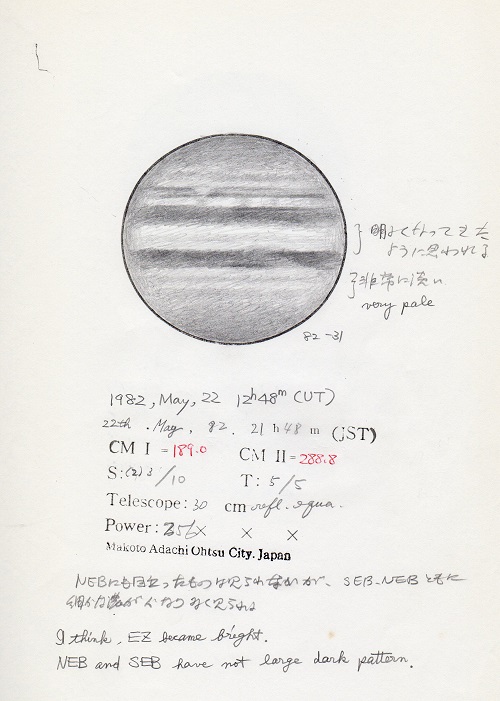 明るくなってきた
ように思われる
非常に淡い
very pale
82-31
1982, May, 22 12h48m (UT)
22th. May. 82. 21 h 48 m (JST)
CM I = 189.0 CM II = 288.8
S: (2) 3/10 T: 5/5
Telescope: 30 cm refl. equa.
Power: 256× × ×
Makoto Adachi Ohtsu City. Japan
NEBにも目立ったものは見られないが、SEB、NEBともに
I think, EZ became bright.
NEB and SEB have not large dark pattern.